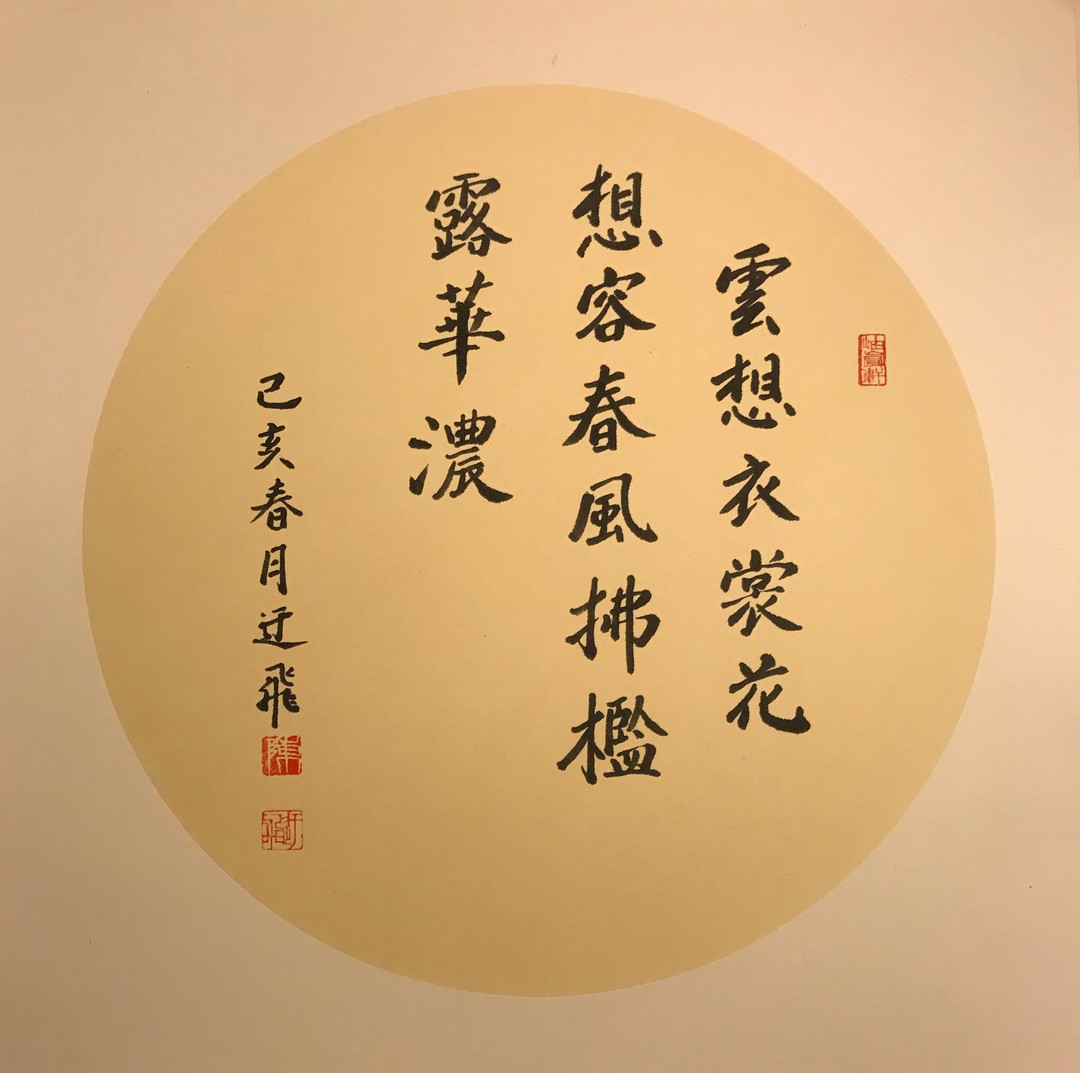 雲想衣裳花
想容春風拂檻
露華濃
己亥春月迂飛